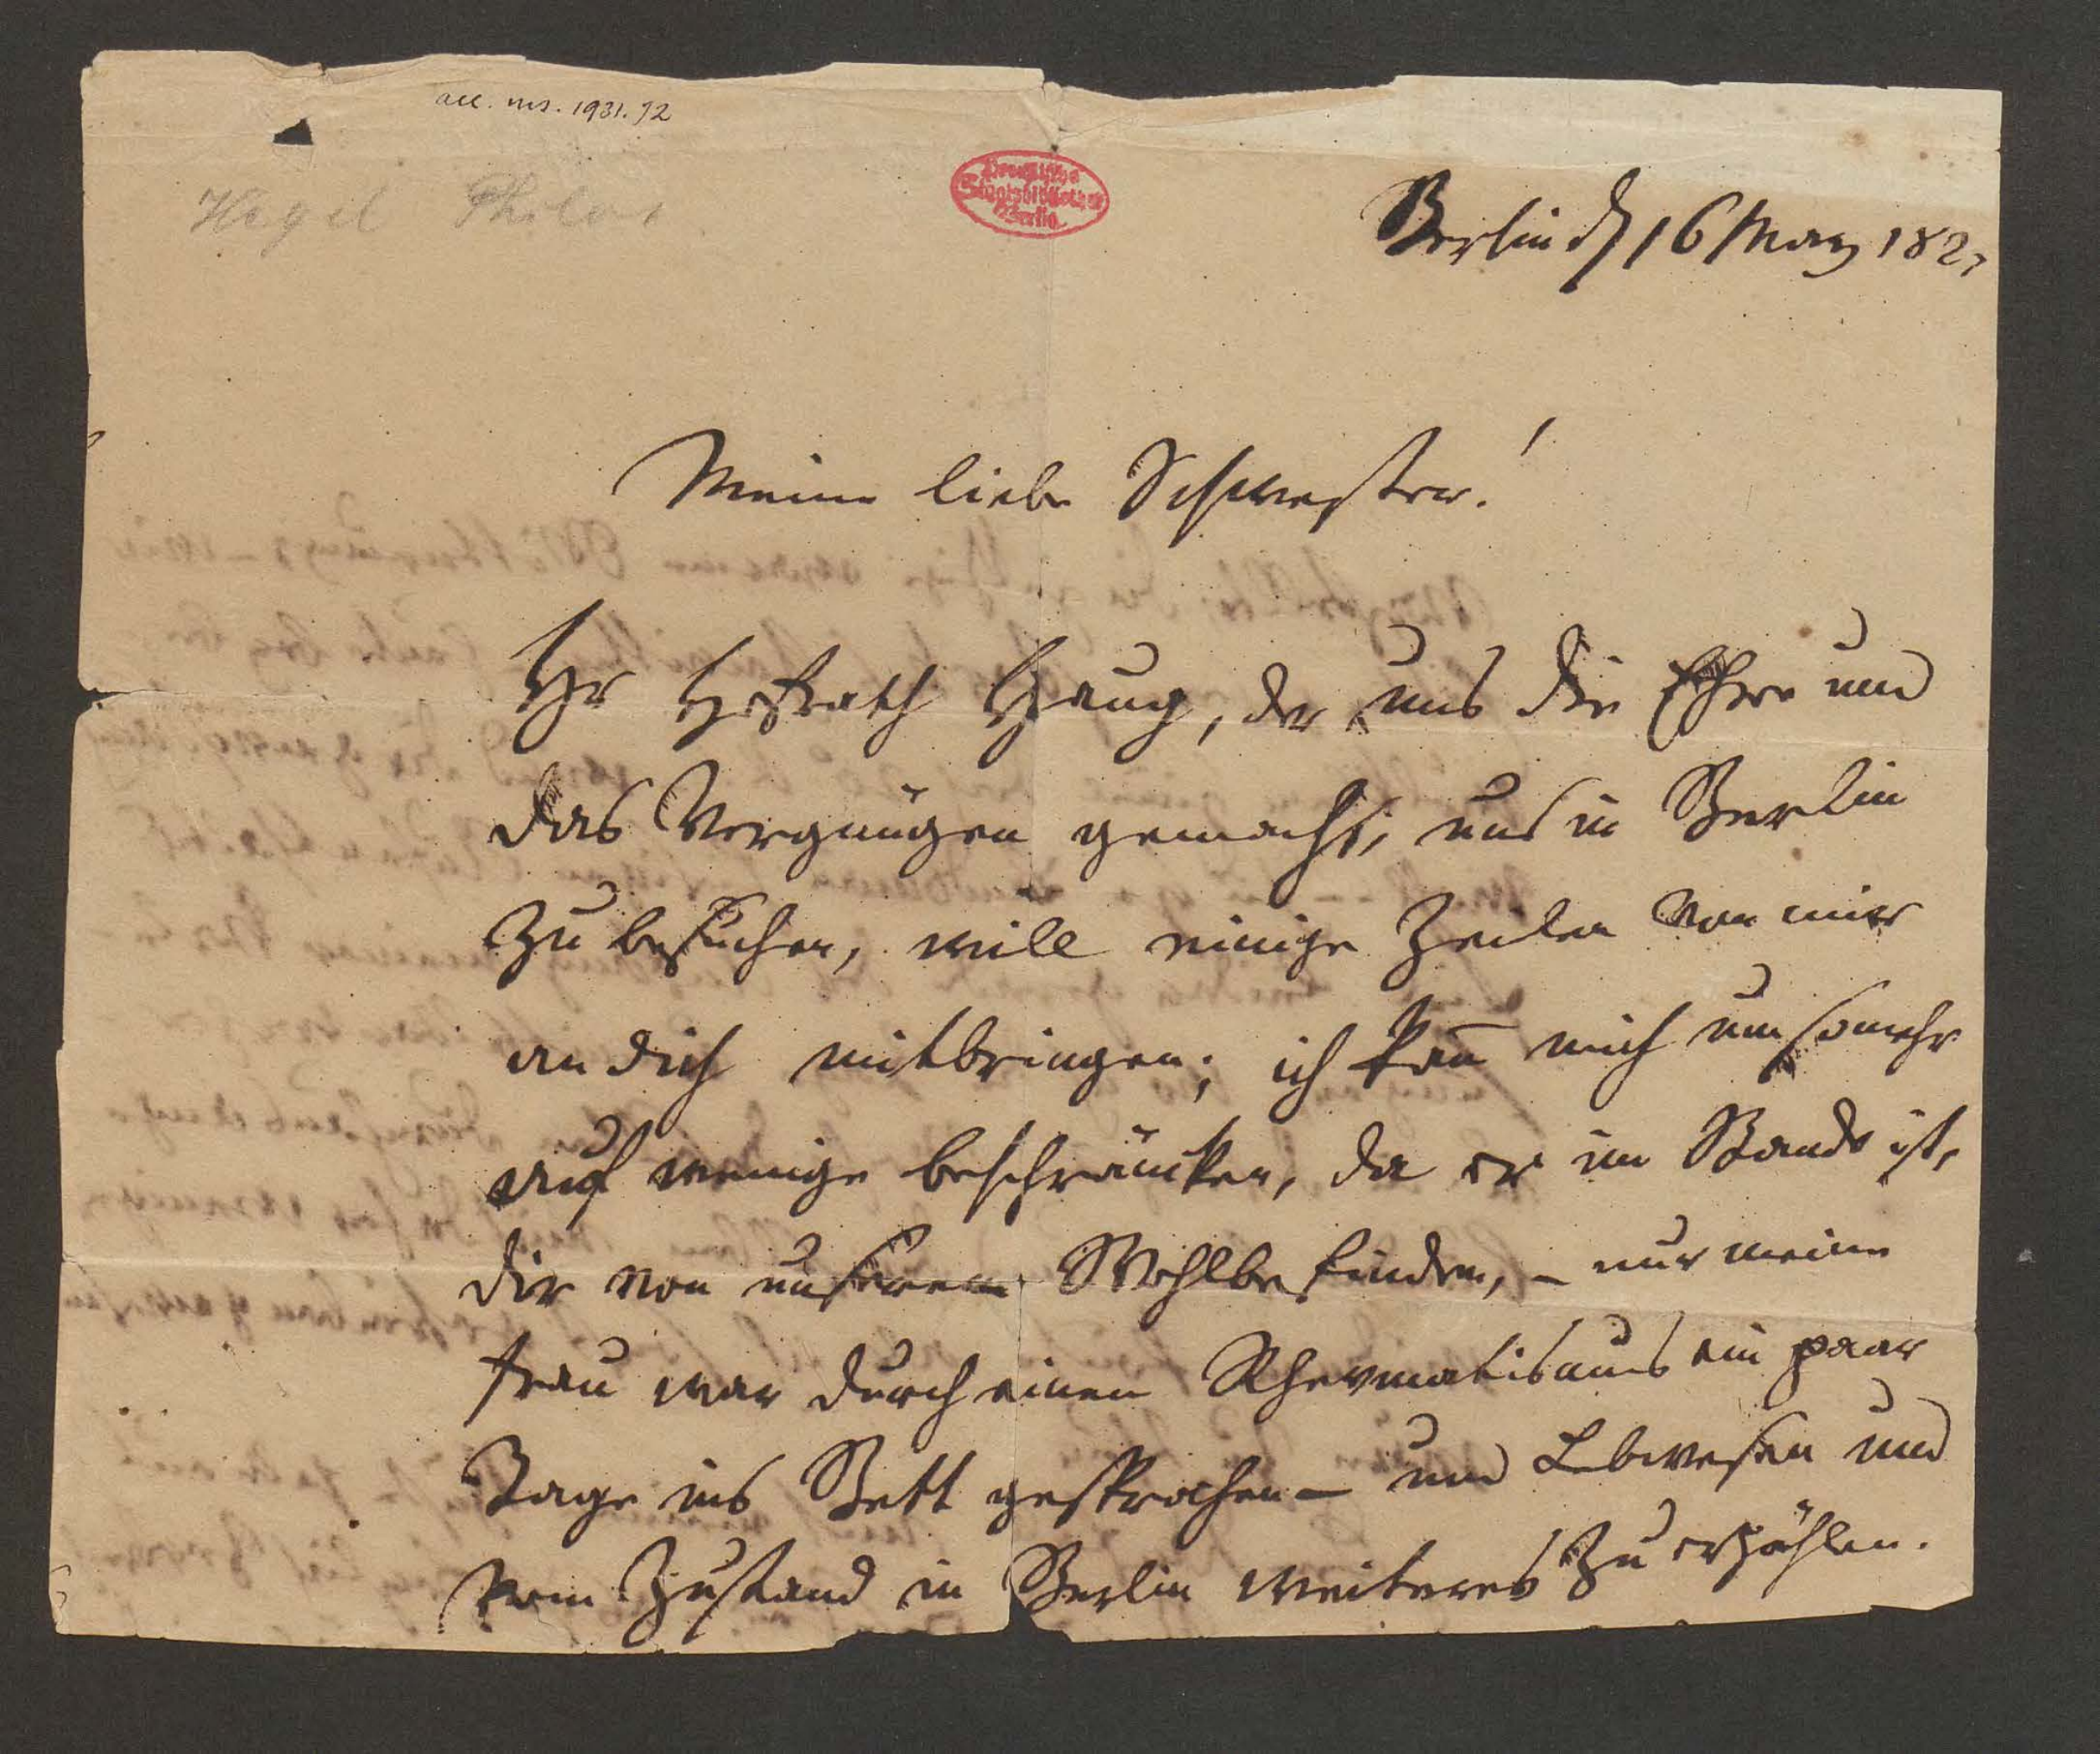 acc. ms. 1931.72
Hegel Philos.
Preußische
Staatsbibliothek
Berlin
Berlin d. 16 März 182
Meine liebe Schwester!
Hr Hofrath Haug, der uns die Ehre und
das Vergnügen gemacht, uns in Berlin
zu besuchen, will einige Zeilen von mir
an dich mitbringen; ich kan̄ mich um so mehr
auf wenige beschräncken, da er im Stande ist,
dir von unserem Wohlbefinden, – nur meine
Frau war durch einen Rhevmatismus ein paar
Tage ins Bett gesprochen – und Lebwesen und
vom Zustand in Berlin weiteres zu erzählen.